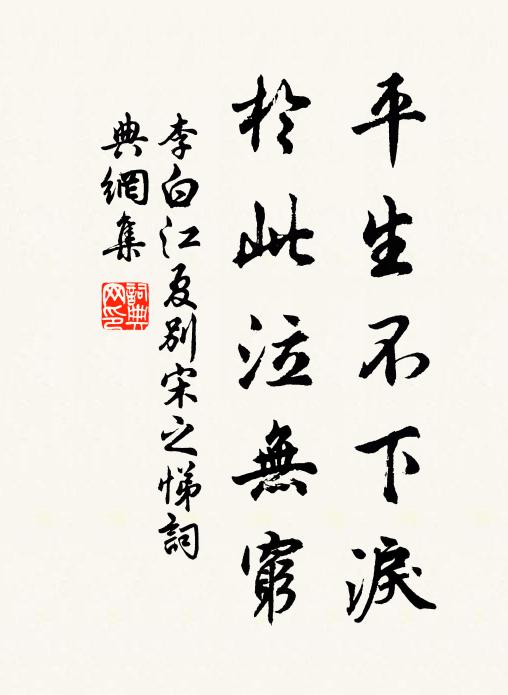 平生不下淚
於此泣無窮
李白江夏別宋之悌詞
典網集
詞典網印